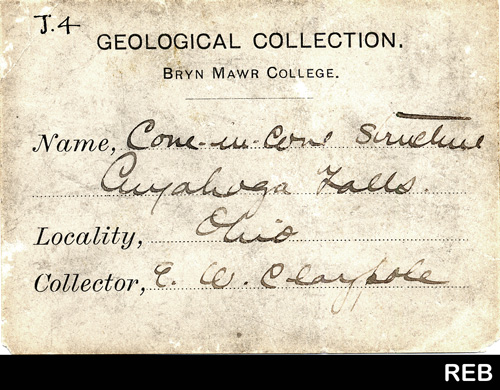 J.4
GEOLOGICAL COLLECTION.
BRYN MAWR COLLEGE.
Name, Cone-in-Cone Structure
Cuyahoga Falls.
Locality, Ohio
Collector, E. W. Claypole
REB